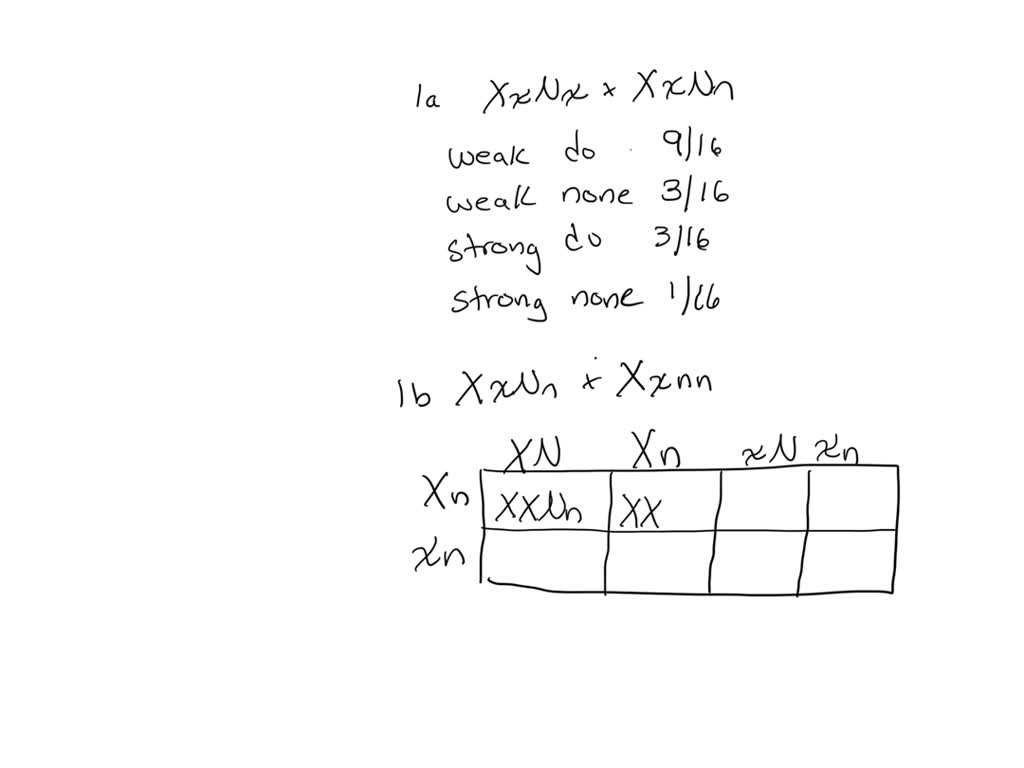 1a XxNx x XxNn
weak do 9/16
weak none 3/16
strong do 3/16
strong none 1/16
1b XxNn x Xxnn
XN Xn xN xn
Xn XXNn XX
xn